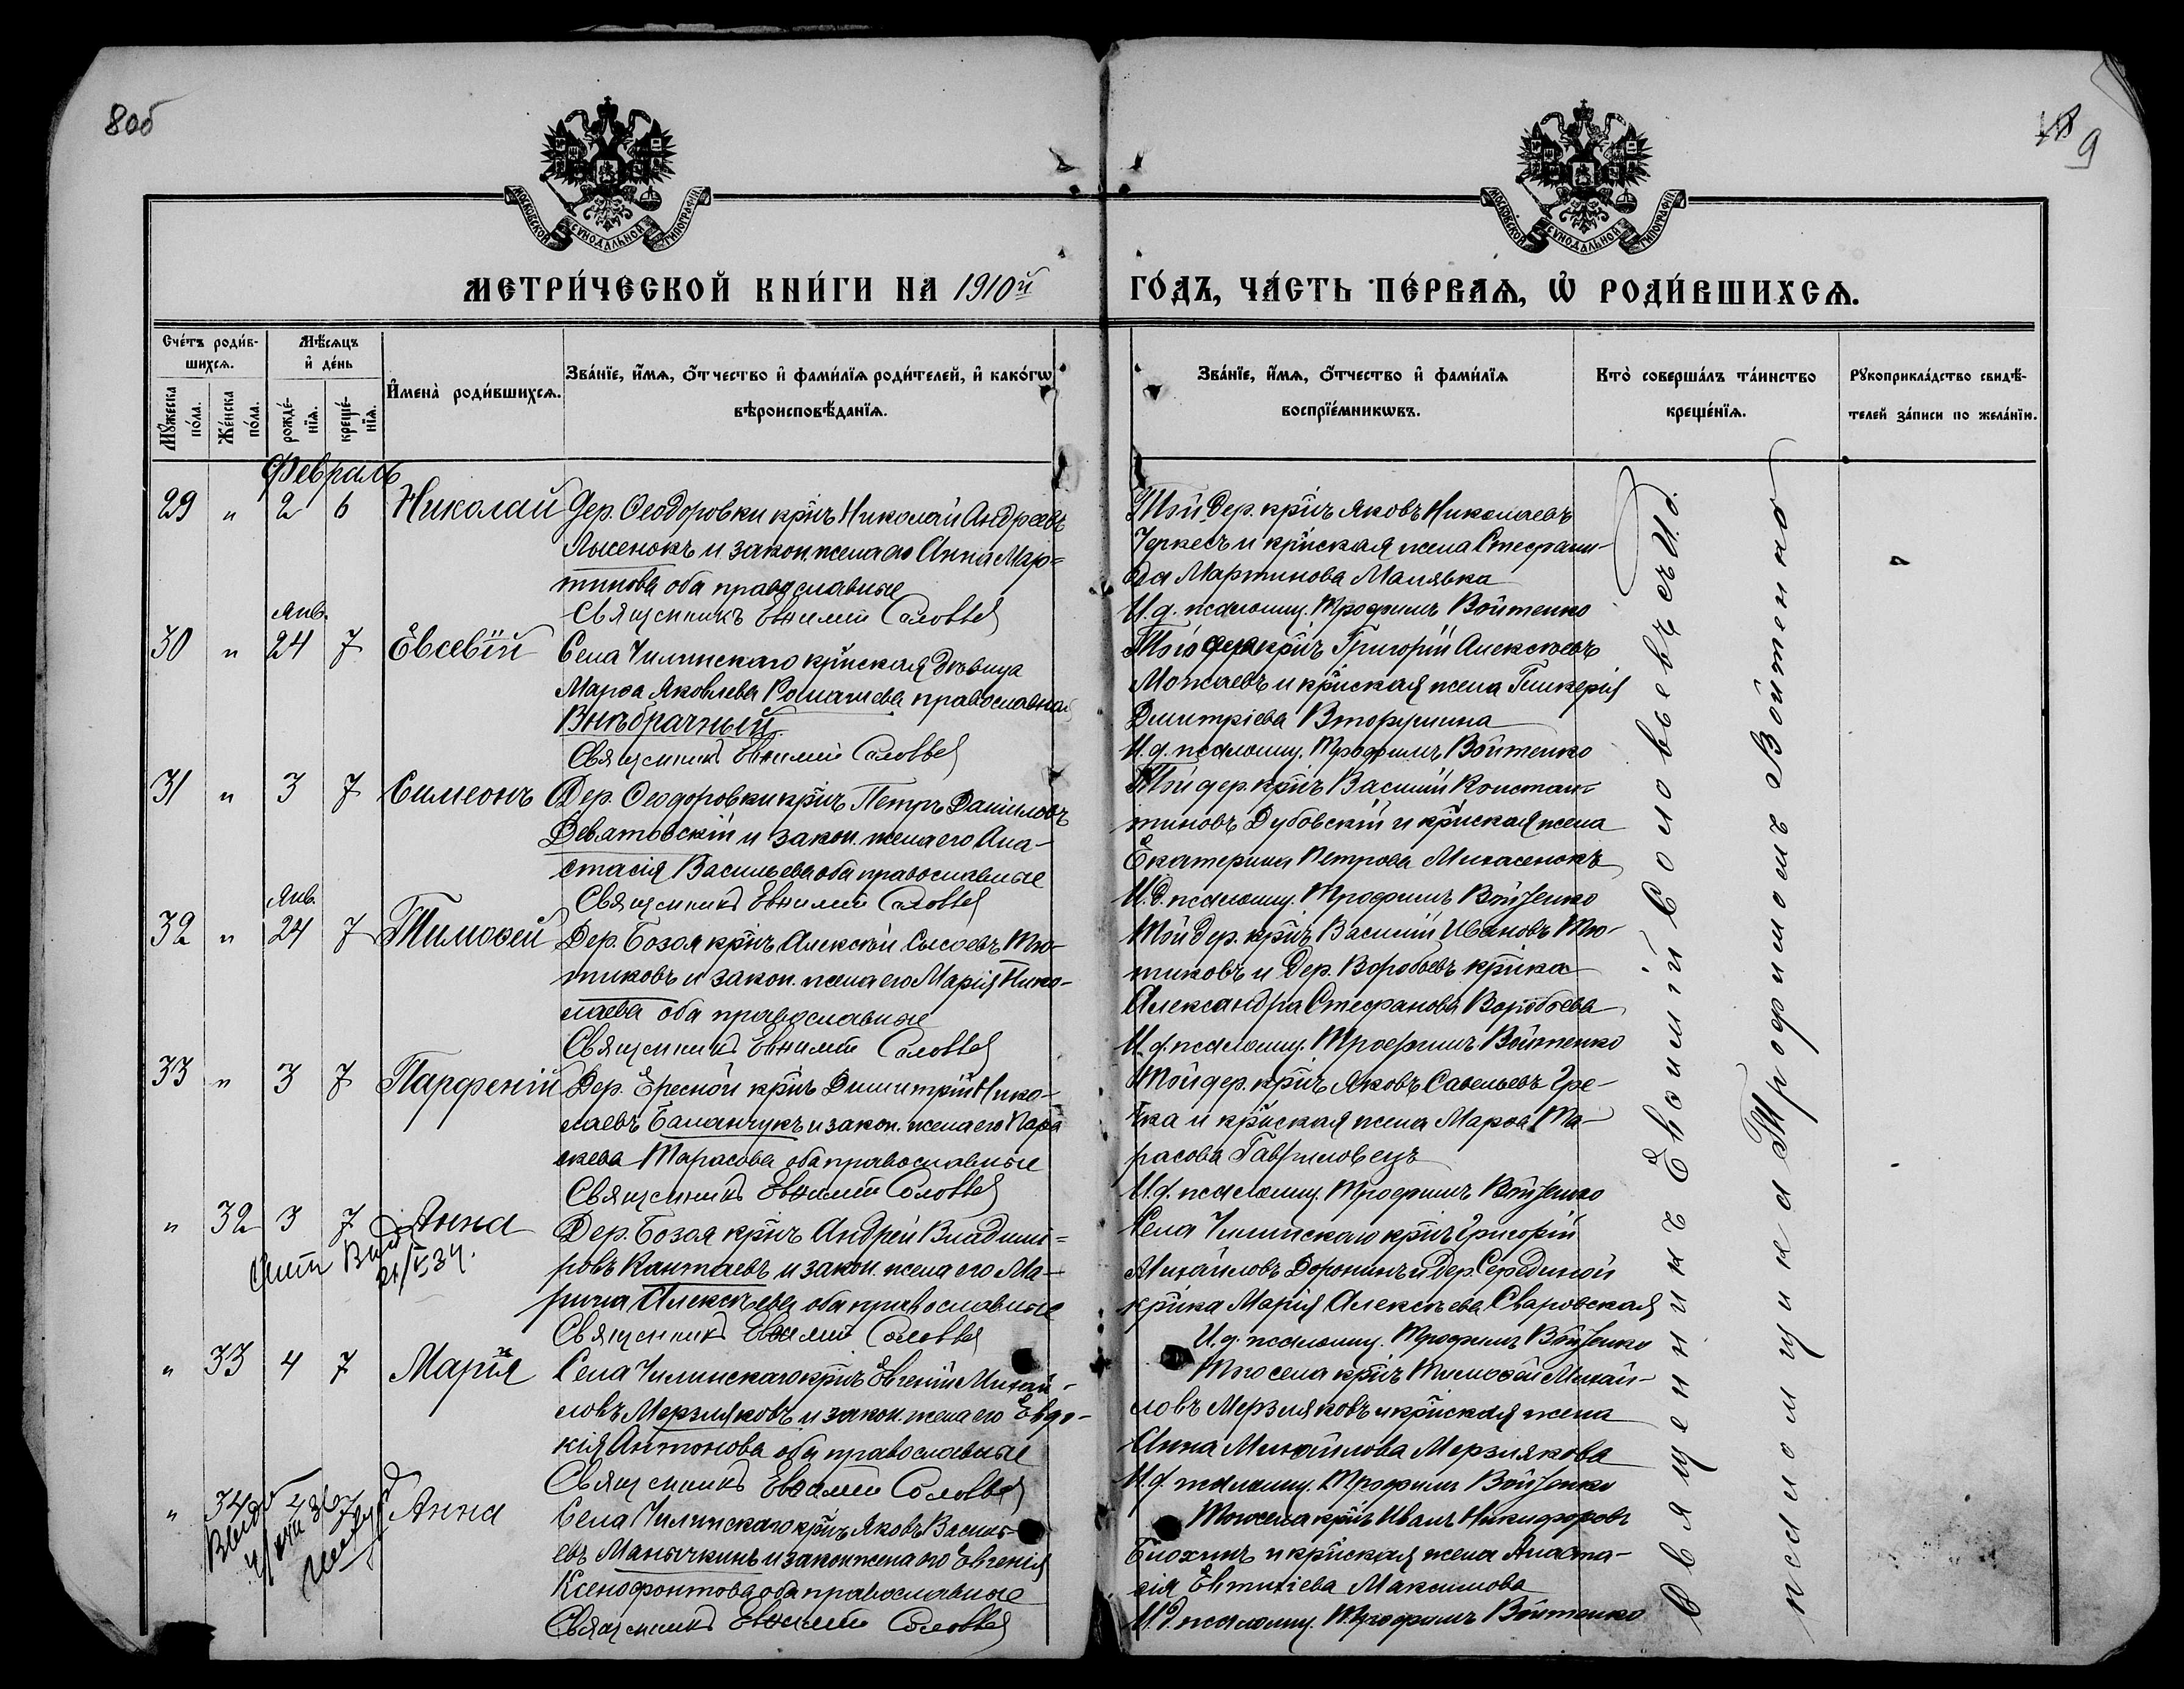 8об
9
МОСКОВСКОЙ СУНОДАЛЬНОЙ ТИПОГРАФІИ.
МОСКОВСКОЙ СУНОДАЛЬНОЙ ТИПОГРАФІИ.
МЕТРИ́ЧЕСКОЙ КНИ́ГИ НА 1910й ГО́ДЪ, ЧА́СТЬ ПЕ́РВАѦ, Ѡ РОДИ́ВШИХСѦ.
Сче́тъ роди́в-
шихсѧ.
Мꙋ́жеска по́ла.
Же́нска по́ла.
Мѣ́сѧцъ
и҆ де́нь
рожде́-
нїѧ.
креще́-
нїѧ.
И҆мена̀ роди́вшихсѧ.
Зва́нїе, и҆́мѧ, ѻ҆́тчество и҆ фами́лїѧ роди́телей, и҆ како́гѡ
вѣроисповѣ́данїѧ.
Зва́нїе, и҆́мѧ, ѻ҆́тчество и҆ фами́лїѧ
воспрїе́мникѡвъ.
Кто̀ соверша́лъ та́инство
креще́нїѧ.
Рꙋкоприкла́дство свидѣ́-
телей за́писи по жела́нїю.
Февраль
29 " 2 6 Николай Дер. Ѳеодоровки кр͠нъ Николай Андреевъ
Лысенокъ и закон. жена его Анна Мар-
тинова оба православные
Священникъ Евѳимій Соловьев
Той дер. кр͠нъ Яковъ Николаевъ
Черкесъ и кр͠нская жена Стефани-
да Мартинова Малявка
И.д. псаломщ. Трофимъ Войтенко
Янв.
30 " 24 7 Евсевій Села Чилинскаго кр͠нская дѣвица
Марѳа Яковлева Ромашева православная
Внѣбрачный.
Священникъ Евѳимій Соловьев
Того села кр͠нъ Григорій Алексѣевъ
Можаевъ и кр͠нская жена Гликерія
Димитріева Вторушина
И.д. псаломщ. Трофимъ Войтенко
31 " 3 7 Симеонъ Дер. Ѳеодоровки кр͠нъ Петръ Даниловъ
Деватовскій и закон. жена его Ана-
стасія Васильева оба православные
Священникъ Евѳимій Соловьев
Той дер. кр͠нъ Василій Констан-
тиновъ Дубовскій и кр͠нская жена
Екатерина Петрова Михасенокъ
И.д. псаломщ. Трофимъ Войтенко
Янв.
32 " 24 7 Тимоѳей Дер. Бозоя кр͠нъ Алексѣй Сысоевъ Тю-
тиковъ и закон. жена его Марія Нико-
лаева оба православные
Священникъ Евѳимій Соловьев
Той дер. кр͠нъ Василій Ивановъ Тю-
тиковъ и дер. Воробьевъ кр͠нка
Александра Стефанова Воробьева
И.д. псаломщ. Трофимъ Войтенко
33 " 3 7 Парфеній Дер. Ересной кр͠нъ Димитрій Нико-
лаевъ Баланчукъ и закон. жена его Пара
скева Тарасова оба православные
Священникъ Евѳимій Соловьев
Той дер. кр͠нъ Яковъ Савельевъ Гре-
чка и кр͠нская жена Марѳа Та-
расова Гавриловецъ
И.д. псаломщ. Трофимъ Войтенко
" 32 3 7 Анна Дер. Бозоя кр͠нъ Андрей Владими-
ровъ Кантаевъ и закон. жена его Ма-
рина Алексѣева оба православные
Священникъ Евѳимій Соловьев
Села Чилинскаго кр͠нъ Григорій
Михайловъ Доронинъ и дер. Серединой
кр͠нка Марія Алексѣева Сваровская
И.д. псаломщ. Трофимъ Войтенко
" 33 4 7 Марія Села Чилинскаго кр͠нъ Евгеній Михай-
ловъ Мерзляковъ и закон. жена его Евдо-
кія Антонова оба православные
Священникъ Евѳимій Соловьев
Того села кр͠нъ Тимоѳей Михай-
ловъ Мерзляковъ и кр͠нская жена
Анна Михайлова Мерзлякова
И.д. псаломщ. Трофимъ Войтенко
" 34 4 7 Анна Села Чилинскаго кр͠нъ Яковъ Василь-
евъ Манычкинъ и закон. жена его Евгенія
Ксенофонтова оба православные
Священникъ Евѳимій Соловьев
Того села кр͠нъ Иванъ Никифоровъ
Блохинъ и кр͠нская жена Анаста-
сія Евтихіева Максимова
И.д. псаломщ. Трофимъ Войтенко
Священникъ Евѳимій Соловьевъ И.д.
псаломщика Трофимъ Войтенко